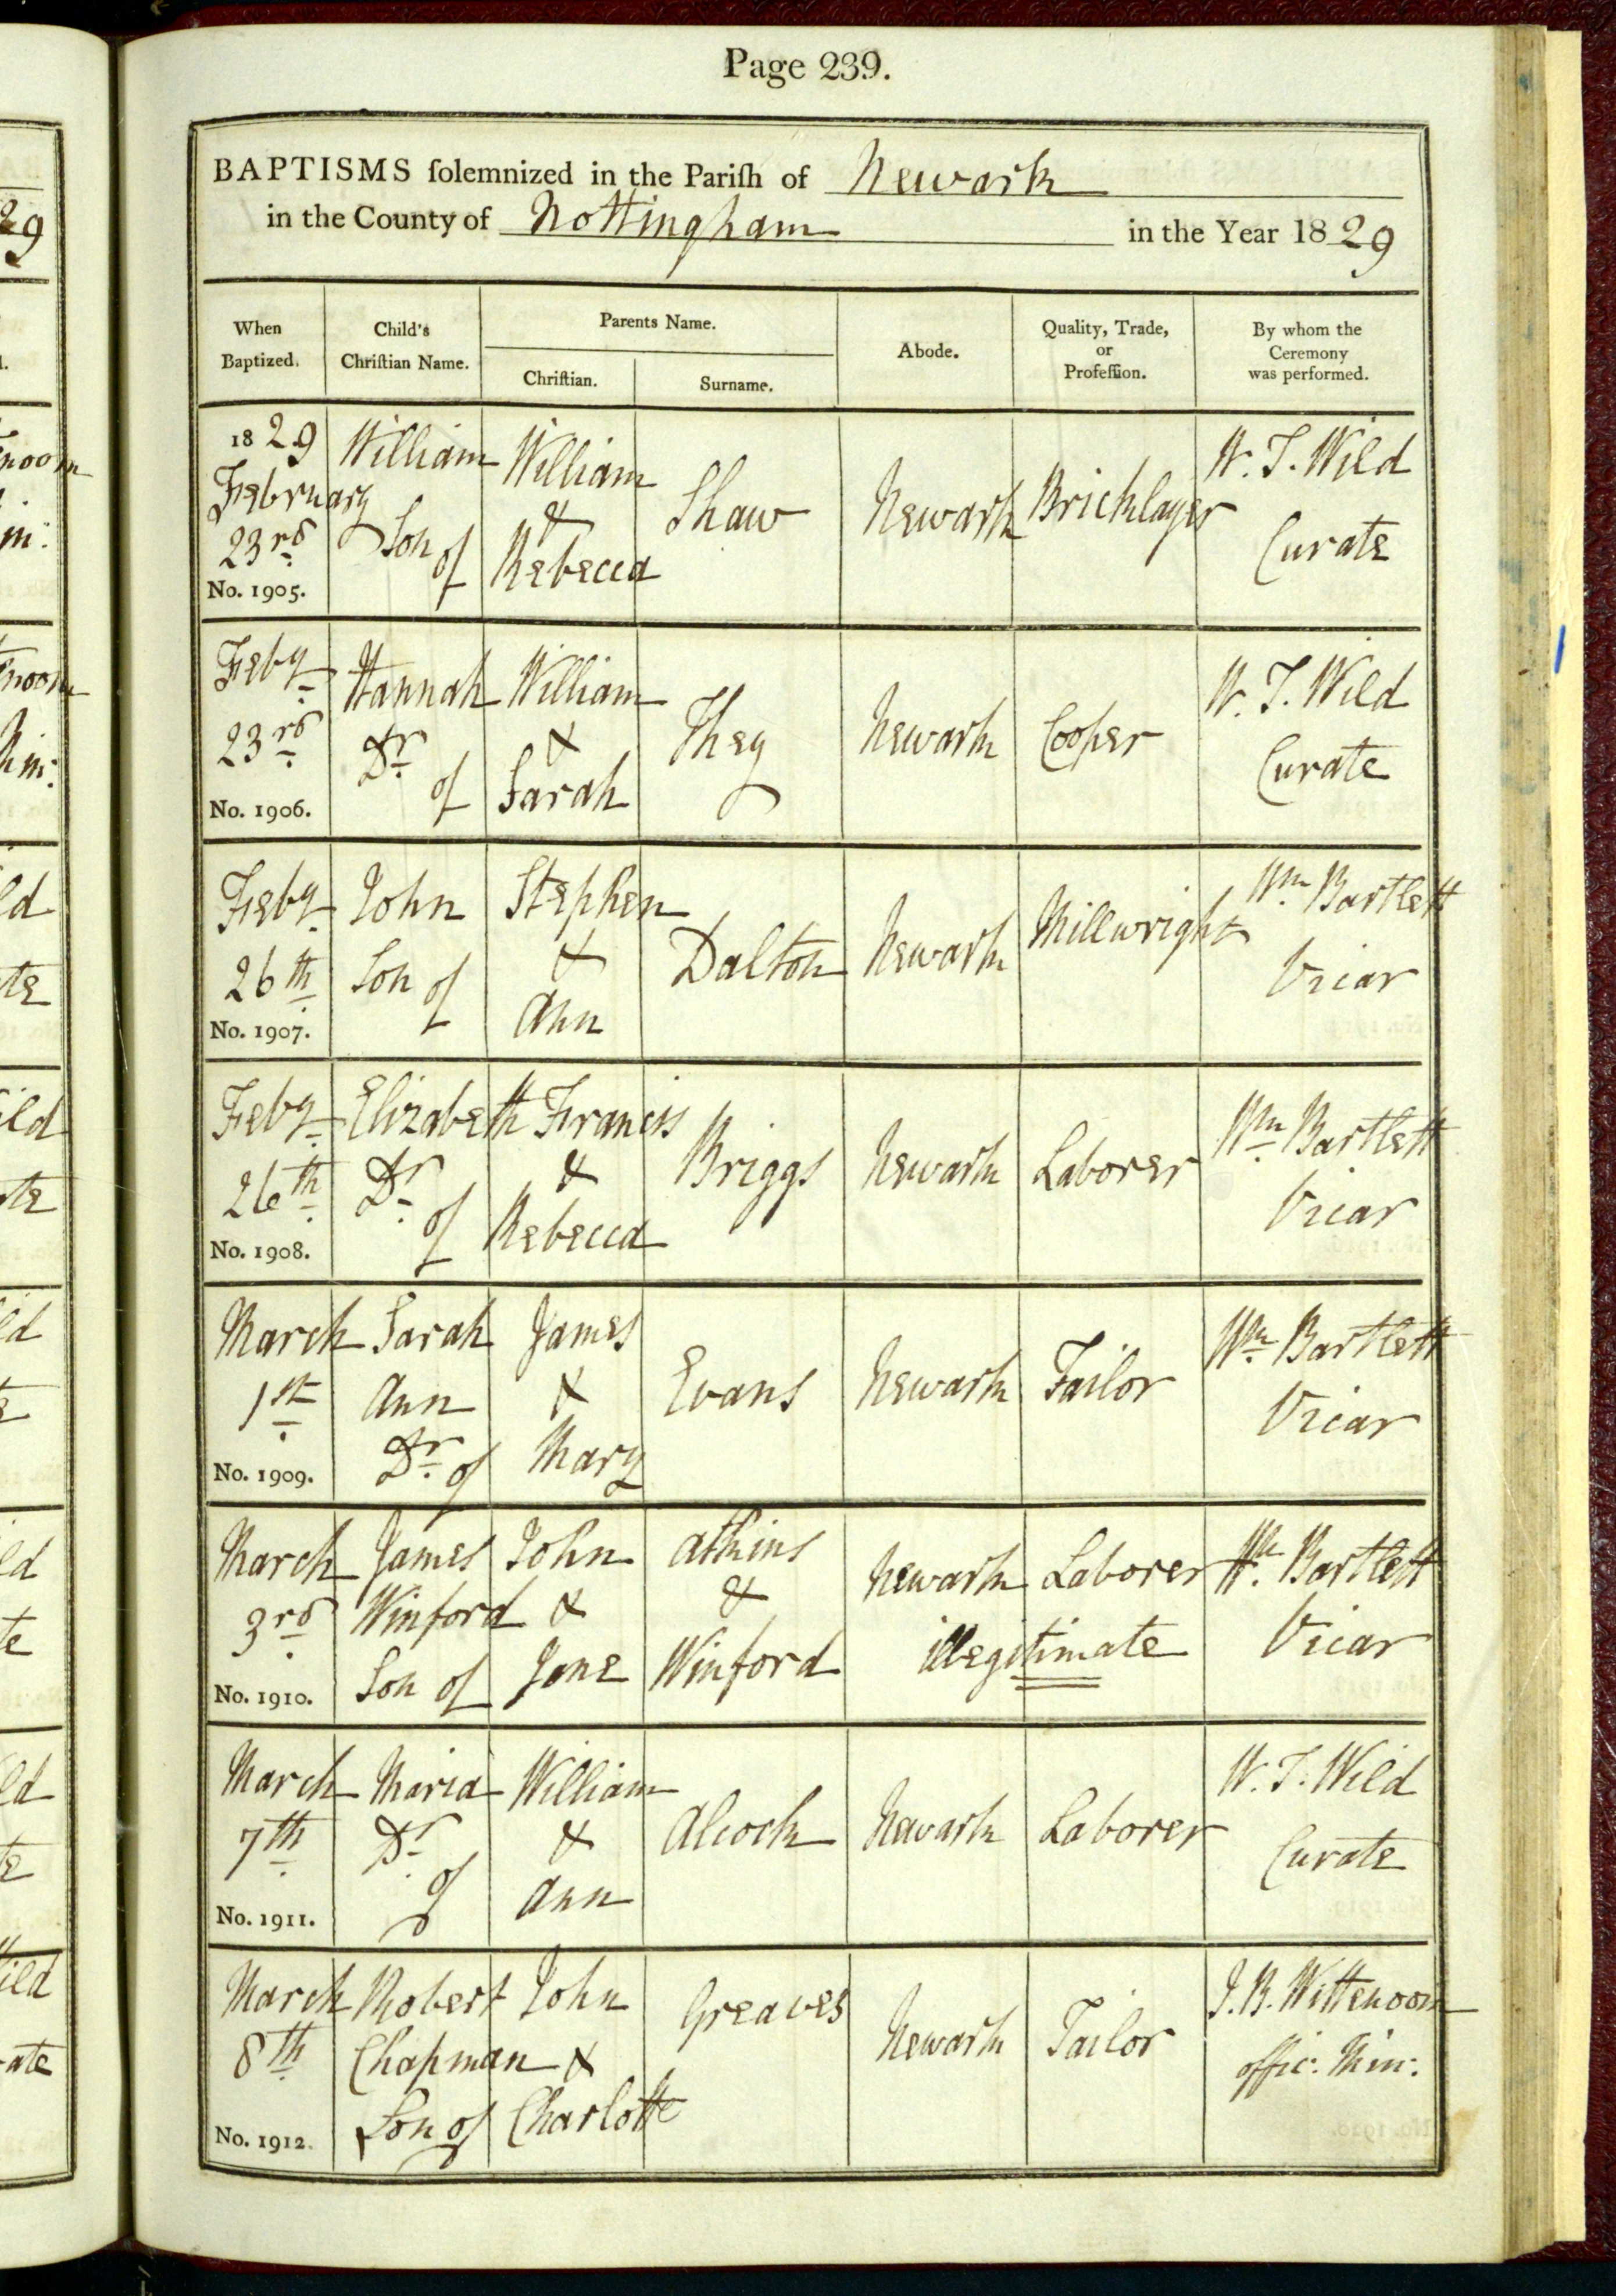 Page 239.
BAPTISMS ſolemnized in the Pariſh of Newark
in the County of Nottingham in the Year 1829
When Baptized.
Child's Chriſtian Name.
Parents Name.
Chriſtian.
Surname.
Abode.
Quality, Trade, or Profeſſion.
By whom the Ceremony was performed.
1829 February 23rd No. 1905.
William Son of
William & Rebecca
Shaw
Newark
Bricklayer
W. T. Wild Curate
Feby 23rd No. 1906.
Hannah Dr of
William & Sarah
Newark
Cooper
W. T. Wild Curate
Feby 26th No. 1907.
John Son of
Stephen & Ann
Dalton
Newark
Millwright
Wm Bartlett Vicar
Feby 26th No. 1908.
Elizabeth Dr of
Francis & Rebecca
Briggs
Newark
Laborer
Wm Bartlett Vicar
March 1st No. 1909.
Sarah Ann Dr of
James & Mary
Evans
Newark
Tailor
Wm Bartlett Vicar
March 3rd No. 1910.
James Winford Son of
John & Jane
Atkins & Winford
Newark
Laborer
illegitimate
Wm Bartlett Vicar
March 7th No. 1911.
Maria Dr of
William & Ann
Alcock
Newark
Laborer
W. T. Wild Curate
March 8th No. 1912.
Robert Chapman Son of
John & Charlotte
Greaves
Newark
Tailor
J. B. Wittenoom offic: Min: